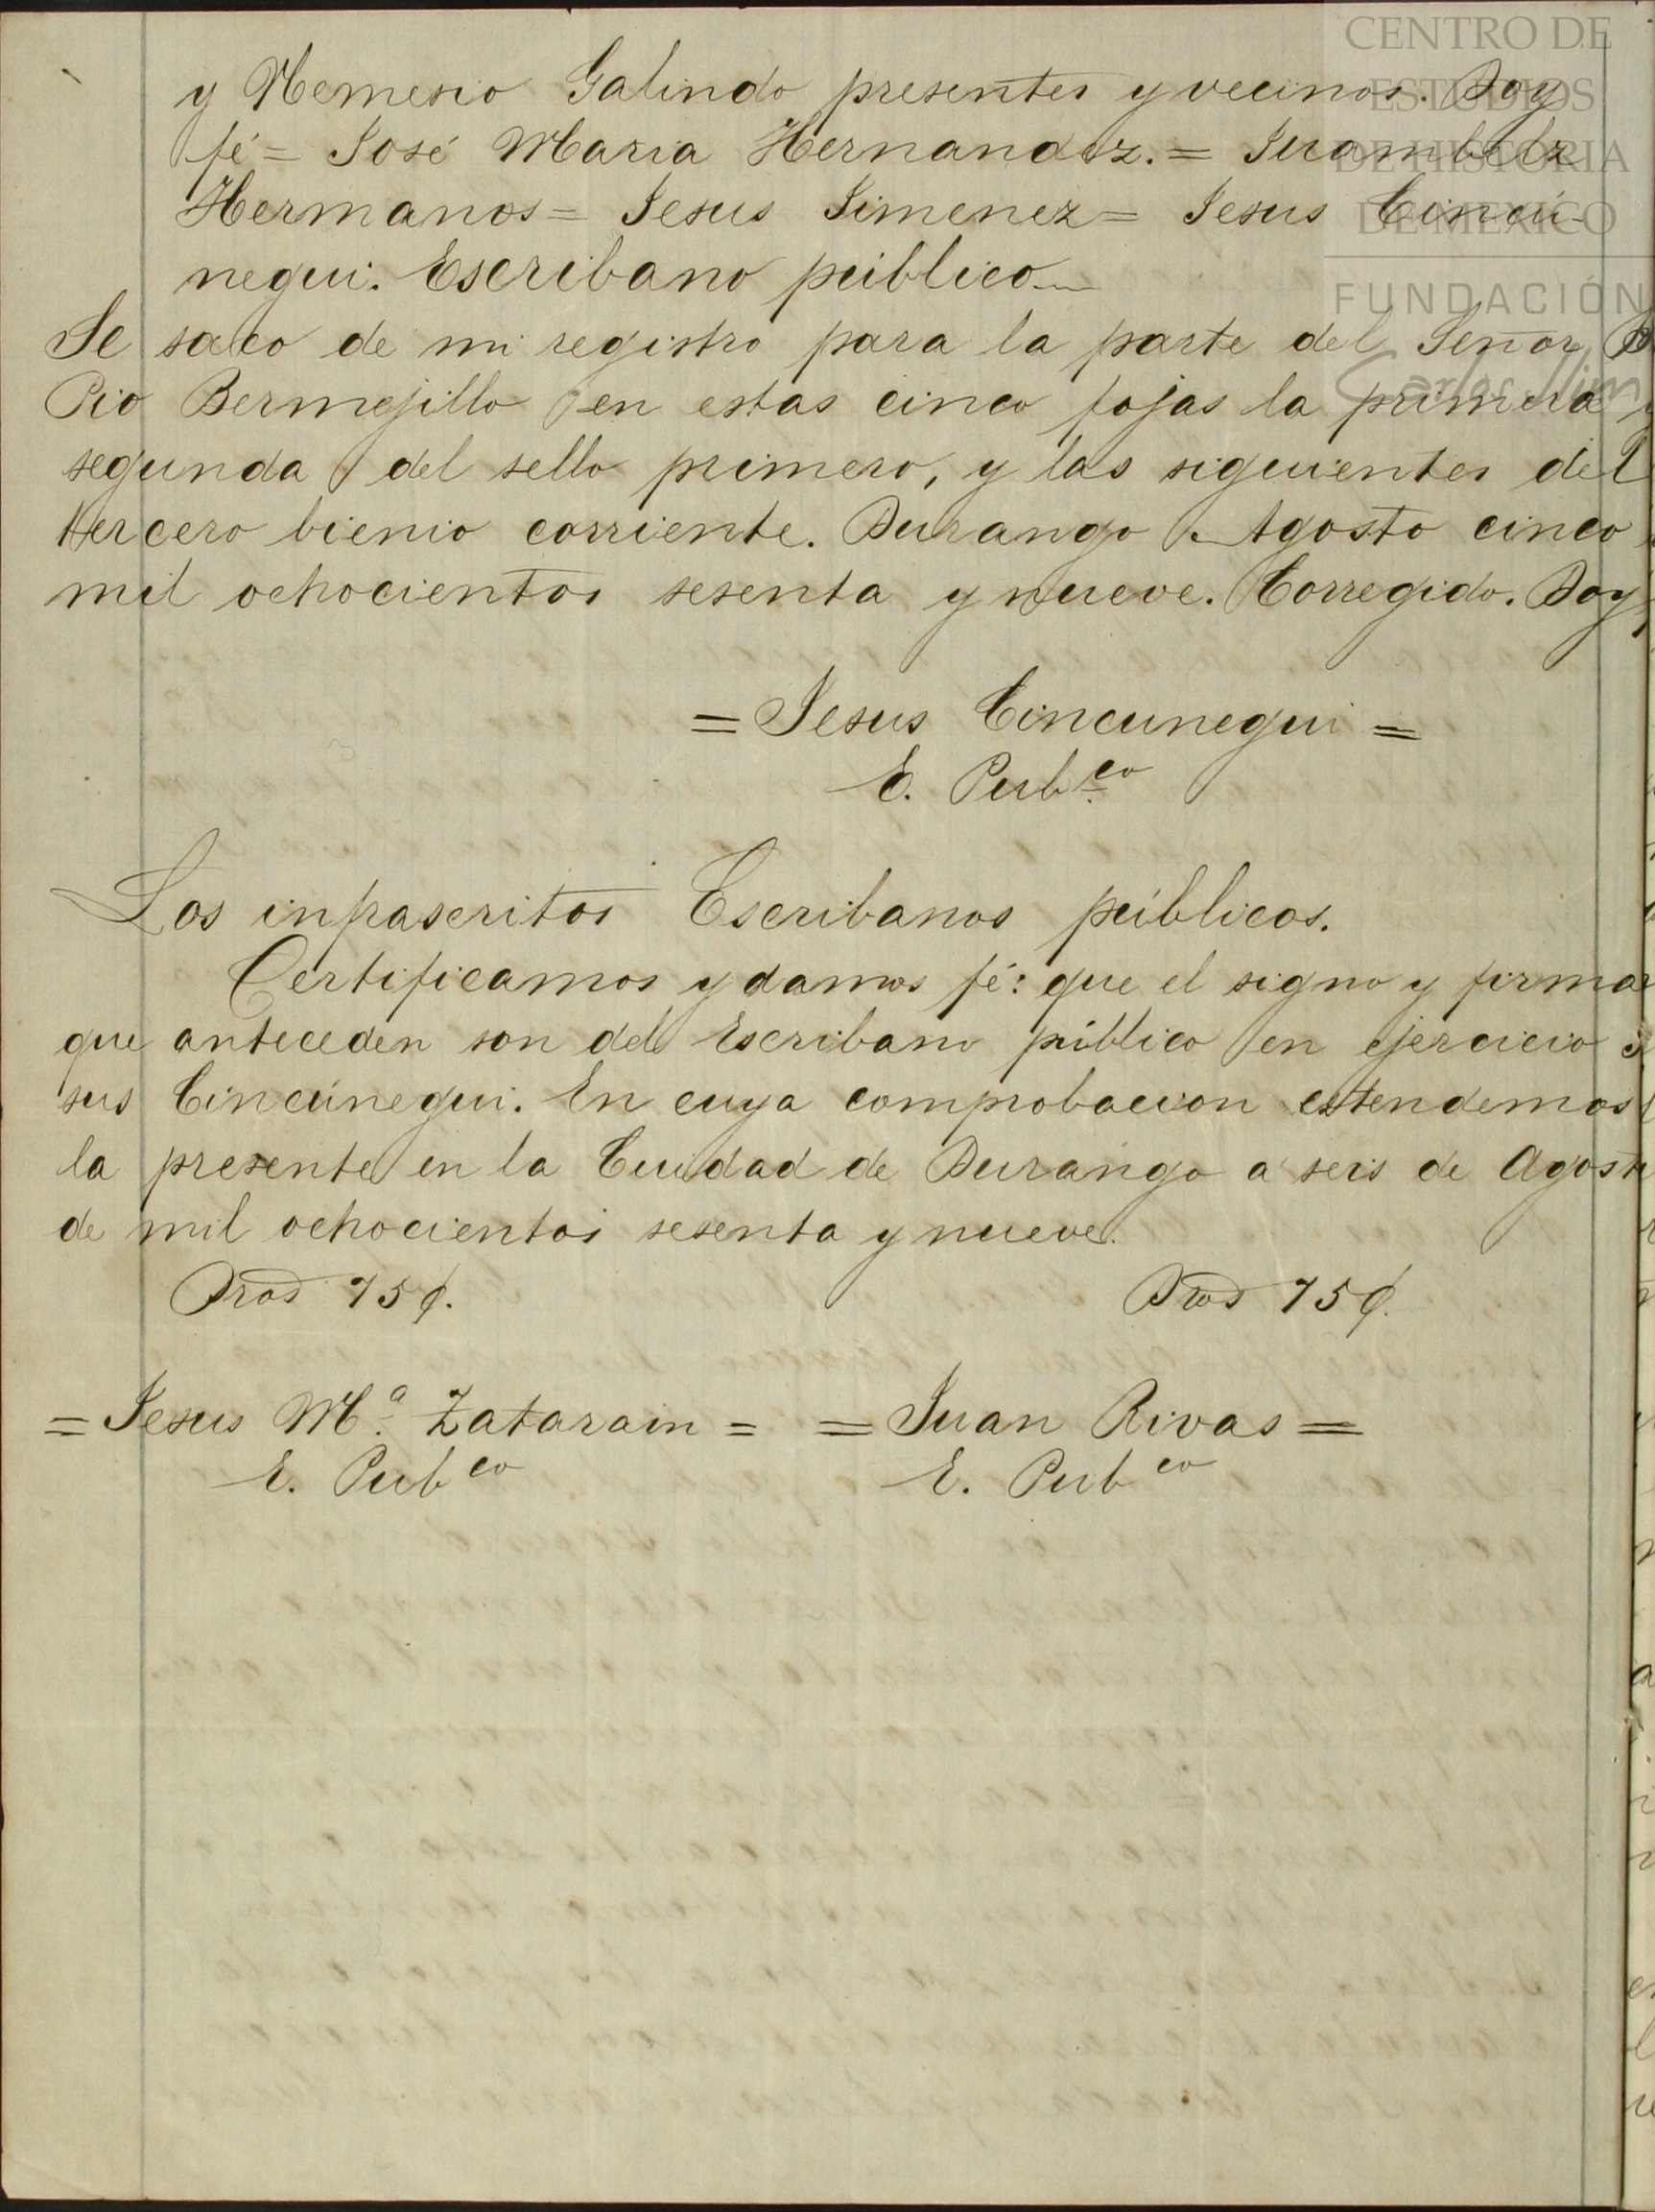 y Nemesio Galindo presentes y vecinos. Doy
fé = José Maria Hernandez. = Juambelz
Hermanos = Jesus Jimenez = Jesus Cincú-
negui. Escribano público
Se saco de mi registro para la parte del Señor D
Pio Bermejillo en estas cinco fojas la primera y
segunda del sello primero, y las siguientes del
tercero bienio corriente. Durango Agosto cinco
mil ochocientos sesenta y nueve. Corregido. Doy
= Jesus Cincunegui =
E. Pubco
Los infrascritos Escribanos públicos.
Certificamos y damos fé: que el signo y firma
que anteceden son del Escribano público en ejercicio
sus Cincúnegui. En cuya comprobacion estendemos
la presente en la Ciudad de Durango a seis de Agosto
de mil ochocientos sesenta y nueve.
Dros 75¢. Dros 75¢.
= Jesus Ma. Zatarain = = Juan Rivas =
E. Pubco E. Pubco
CENTRO DE
ESTUDIOS
DE HISTORIA
DE MEXICO
FUNDACIÓN
Carlos Slim